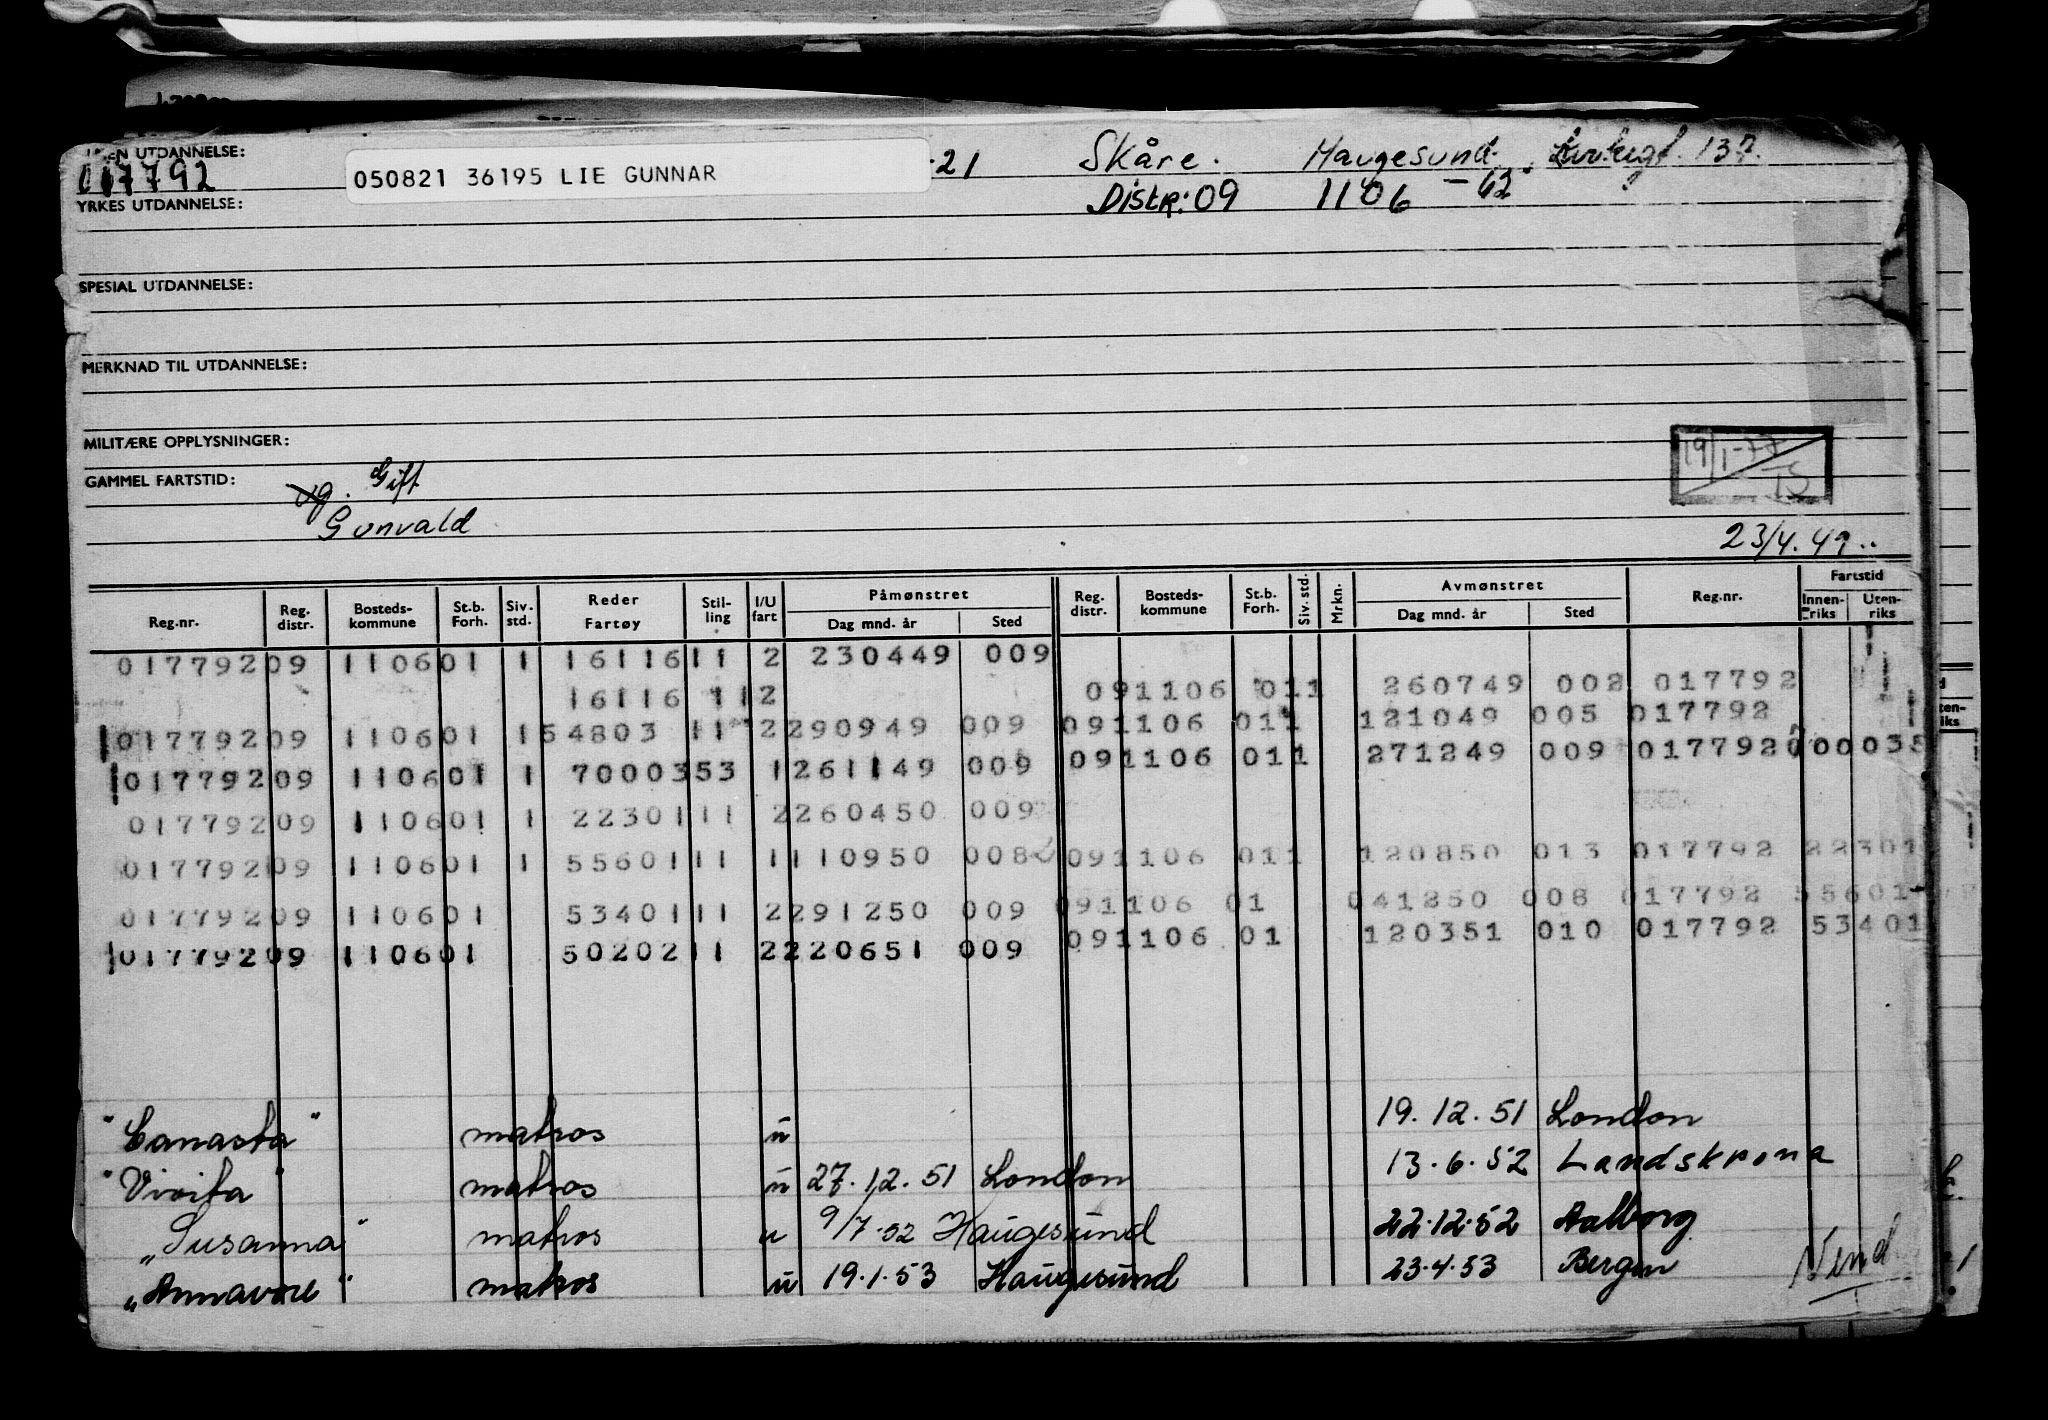 UTDANNELSE:
017792
050821 36195 LIE GUNNAR
-21 Skåre. Haugesund. 137.
Distr: 09 1106 - 62
YRKES UTDANNELSE:
SPESIAL UTDANNELSE:
MERKNAD TIL UTDANNELSE:
MILITÆRE OPPLYSNINGER:
19/1-77
GAMMEL FARTSTID: ug. Gift
Gunvald
23/4.49..
Reg.nr. Reg. distr. Bosteds- kommune St.b. Forh. Siv. std. Reder Fartøy Stil- ling I/U fart Påmønstret Dag mnd. år Sted Reg. distr. Bosteds- kommune St.b. Forh. Siv. std. Mrkn. Avmønstret Dag mnd. år Sted Reg.nr. Fartstid Innen- riks Uten- riks
01779209 110601 1 1611611 2 230449 009
16116 112 091106 011 260749 002 017792
01779209 110601 154803 11 2290949 009 091106 011 121049 005 017792
01779209 110601 1 7000353 1261149 009 091106 011 271249 009 0177920 00035
01779209 110601 1 2230111 2260450 009
01779209 110601 1 5560111 1110950 008 091106 011 120850 013 017792 22301
01779209 110601 5340111 2291250 009 091106 01 041250 008 017792 55601
01779209 110601 5020211 2220651 009 091106 01 120351 010 017792 53401
"Canasta" matros u 19.12.51 London
"Vivita" matros u 27.12.51 London 13.6.52 Landskrona
"Susanna" matros u 9/7.52 Haugesund 22.12.52 Aalborg
"Annavore" matros u 19.1.53 Haugesund 23.4.53 Bergen
Vend